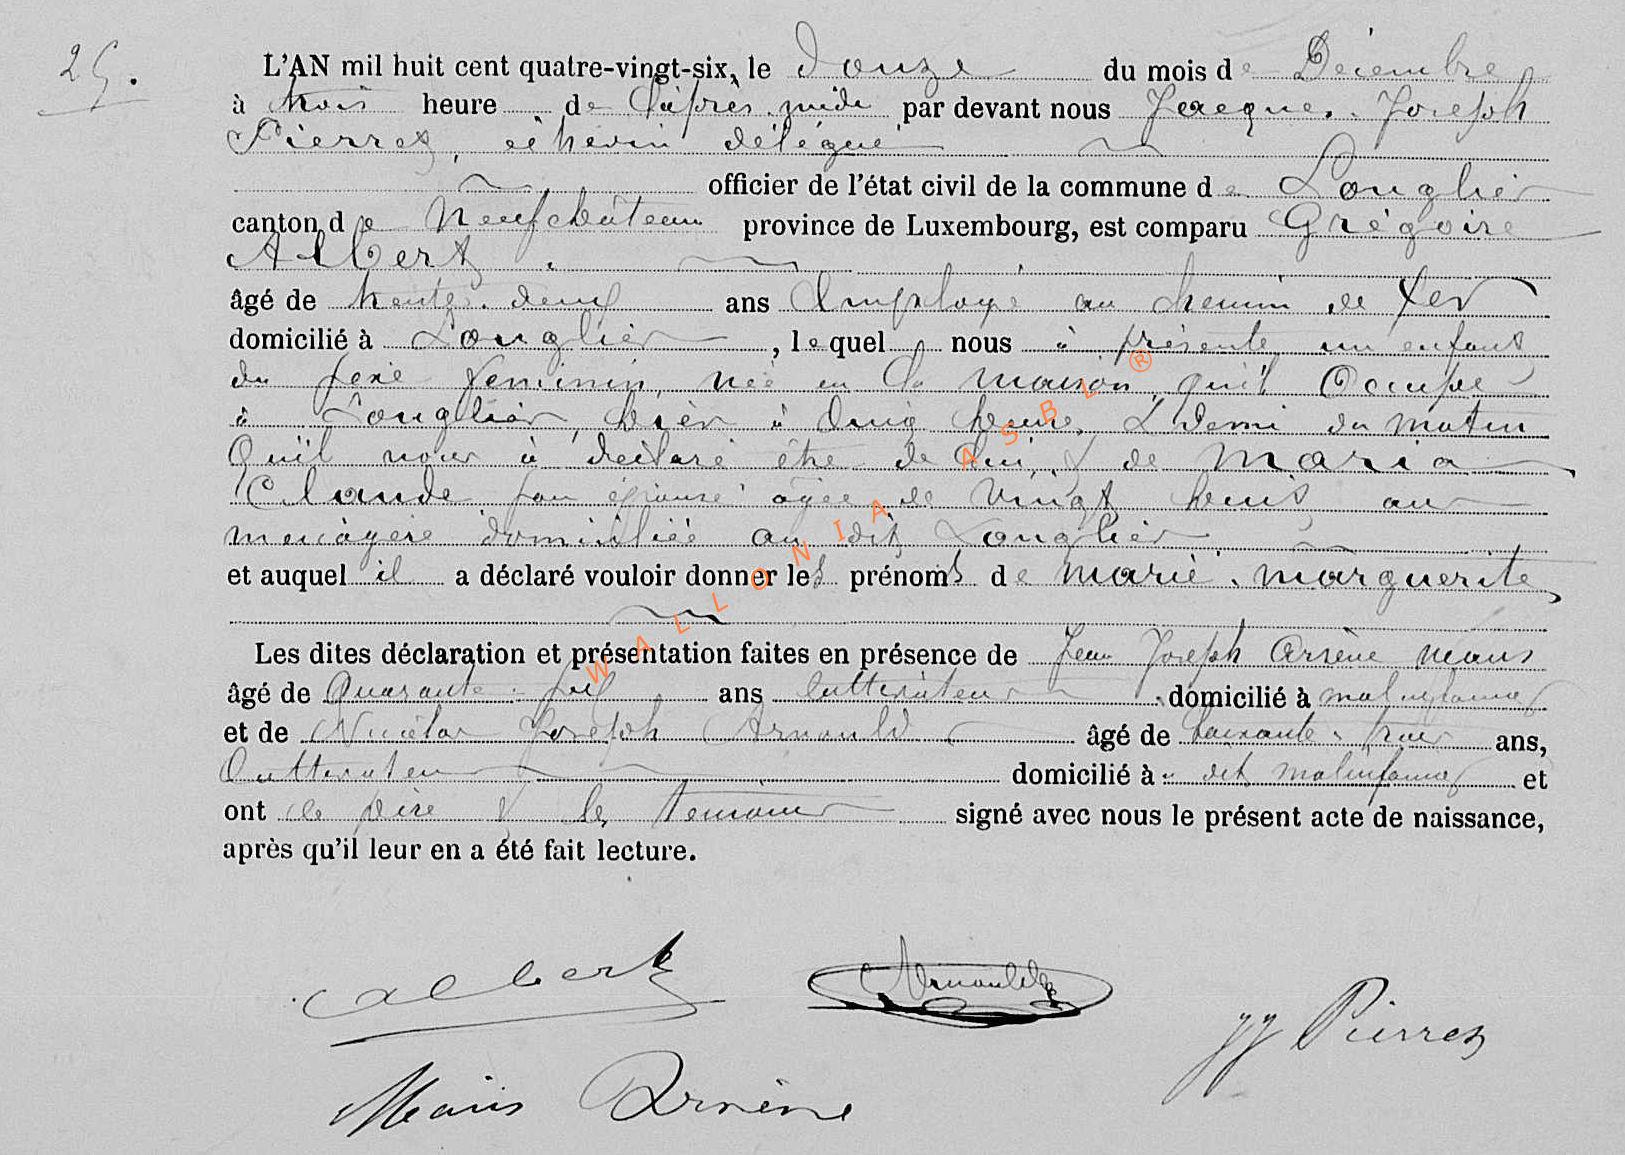 25.
L'AN mil huit cent quatre-vingt-six, le douze du mois de Décembre
à trois heure de l'après midi par devant nous Jacque. Joseph
Pierret, échevin délégué
officier de l'état civil de la commune de Longlier
canton de Neufchâteau province de Luxembourg, est comparu Grégoire
Albert
âgé de trente. deux ans Employé au chemin de fer
domicilié à Longlier, lequel nous à présenté un enfant
du sexe feminin, née en la maison qu'il Occupe
à Longlier, hièr à cinq heure & demi du matin
Qu'il nous à déclaré être de lui, & de Maria
Claude son épouse agée de vingt huit an
menagère domiciliée au dit Longlier
et auquel il a déclaré vouloir donner les prénoms de Marie. Marguerite
Les dites déclaration et présentation faites en présence de Jean Joseph Arsène Maus
âgé de Quarante. ans cultivateur domicilié à
et de Nicolas Joseph Arnould âgé de ans,
Cultivateur domicilié à dit et
ont le père & les temoins signé avec nous le présent acte de naissance,
après qu'il leur en a été fait lecture.
Albert
Arnould
JJ Pierret
Maus Arsène
WALLONIA ASBL ®